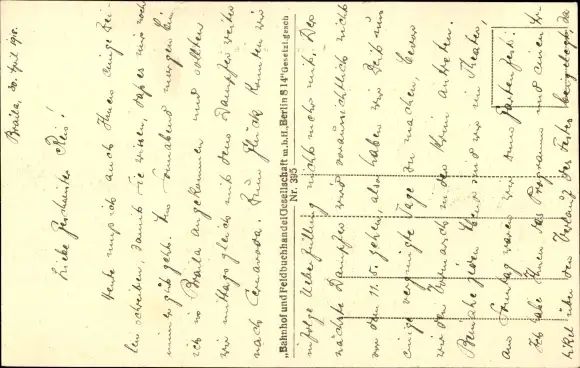 Braila, 30. April 1918.
Liebe Geschwister Reis!
Heute muß ich auch Ihnen einige Zei-
len schreiben, damit Sie wissen, daß es mir noch
immer gut geht. Am Sonnabend morgen bin
ich in Braila angekommen und sollten
wir mittags gleich mit dem Dampfer weiter
nach Cernavoda. Zum Glück konnten wir
infolge Ueberfüllung nicht mehr mit. Der
nächste Dampfer wird voraussichtlich nicht
vor dem 11.5. gehen, also haben wir Zeit uns
einige vergnügte Tage zu machen, bevor
wir den Vormarsch in den Krim antreten.
Beinahe jeden Abend sind wir im Theater,
am Sonntag waren wir zum Gartenfest.
Ich habe Ihnen das Programm und einen Ar-
tikel über den Verlauf des Festes beigelegt, da
„Bahnhof und Feldbuchhandel Gesellschaft m.b.H., Berlin S 14“ Gesetzl. gesch
Nr. 395